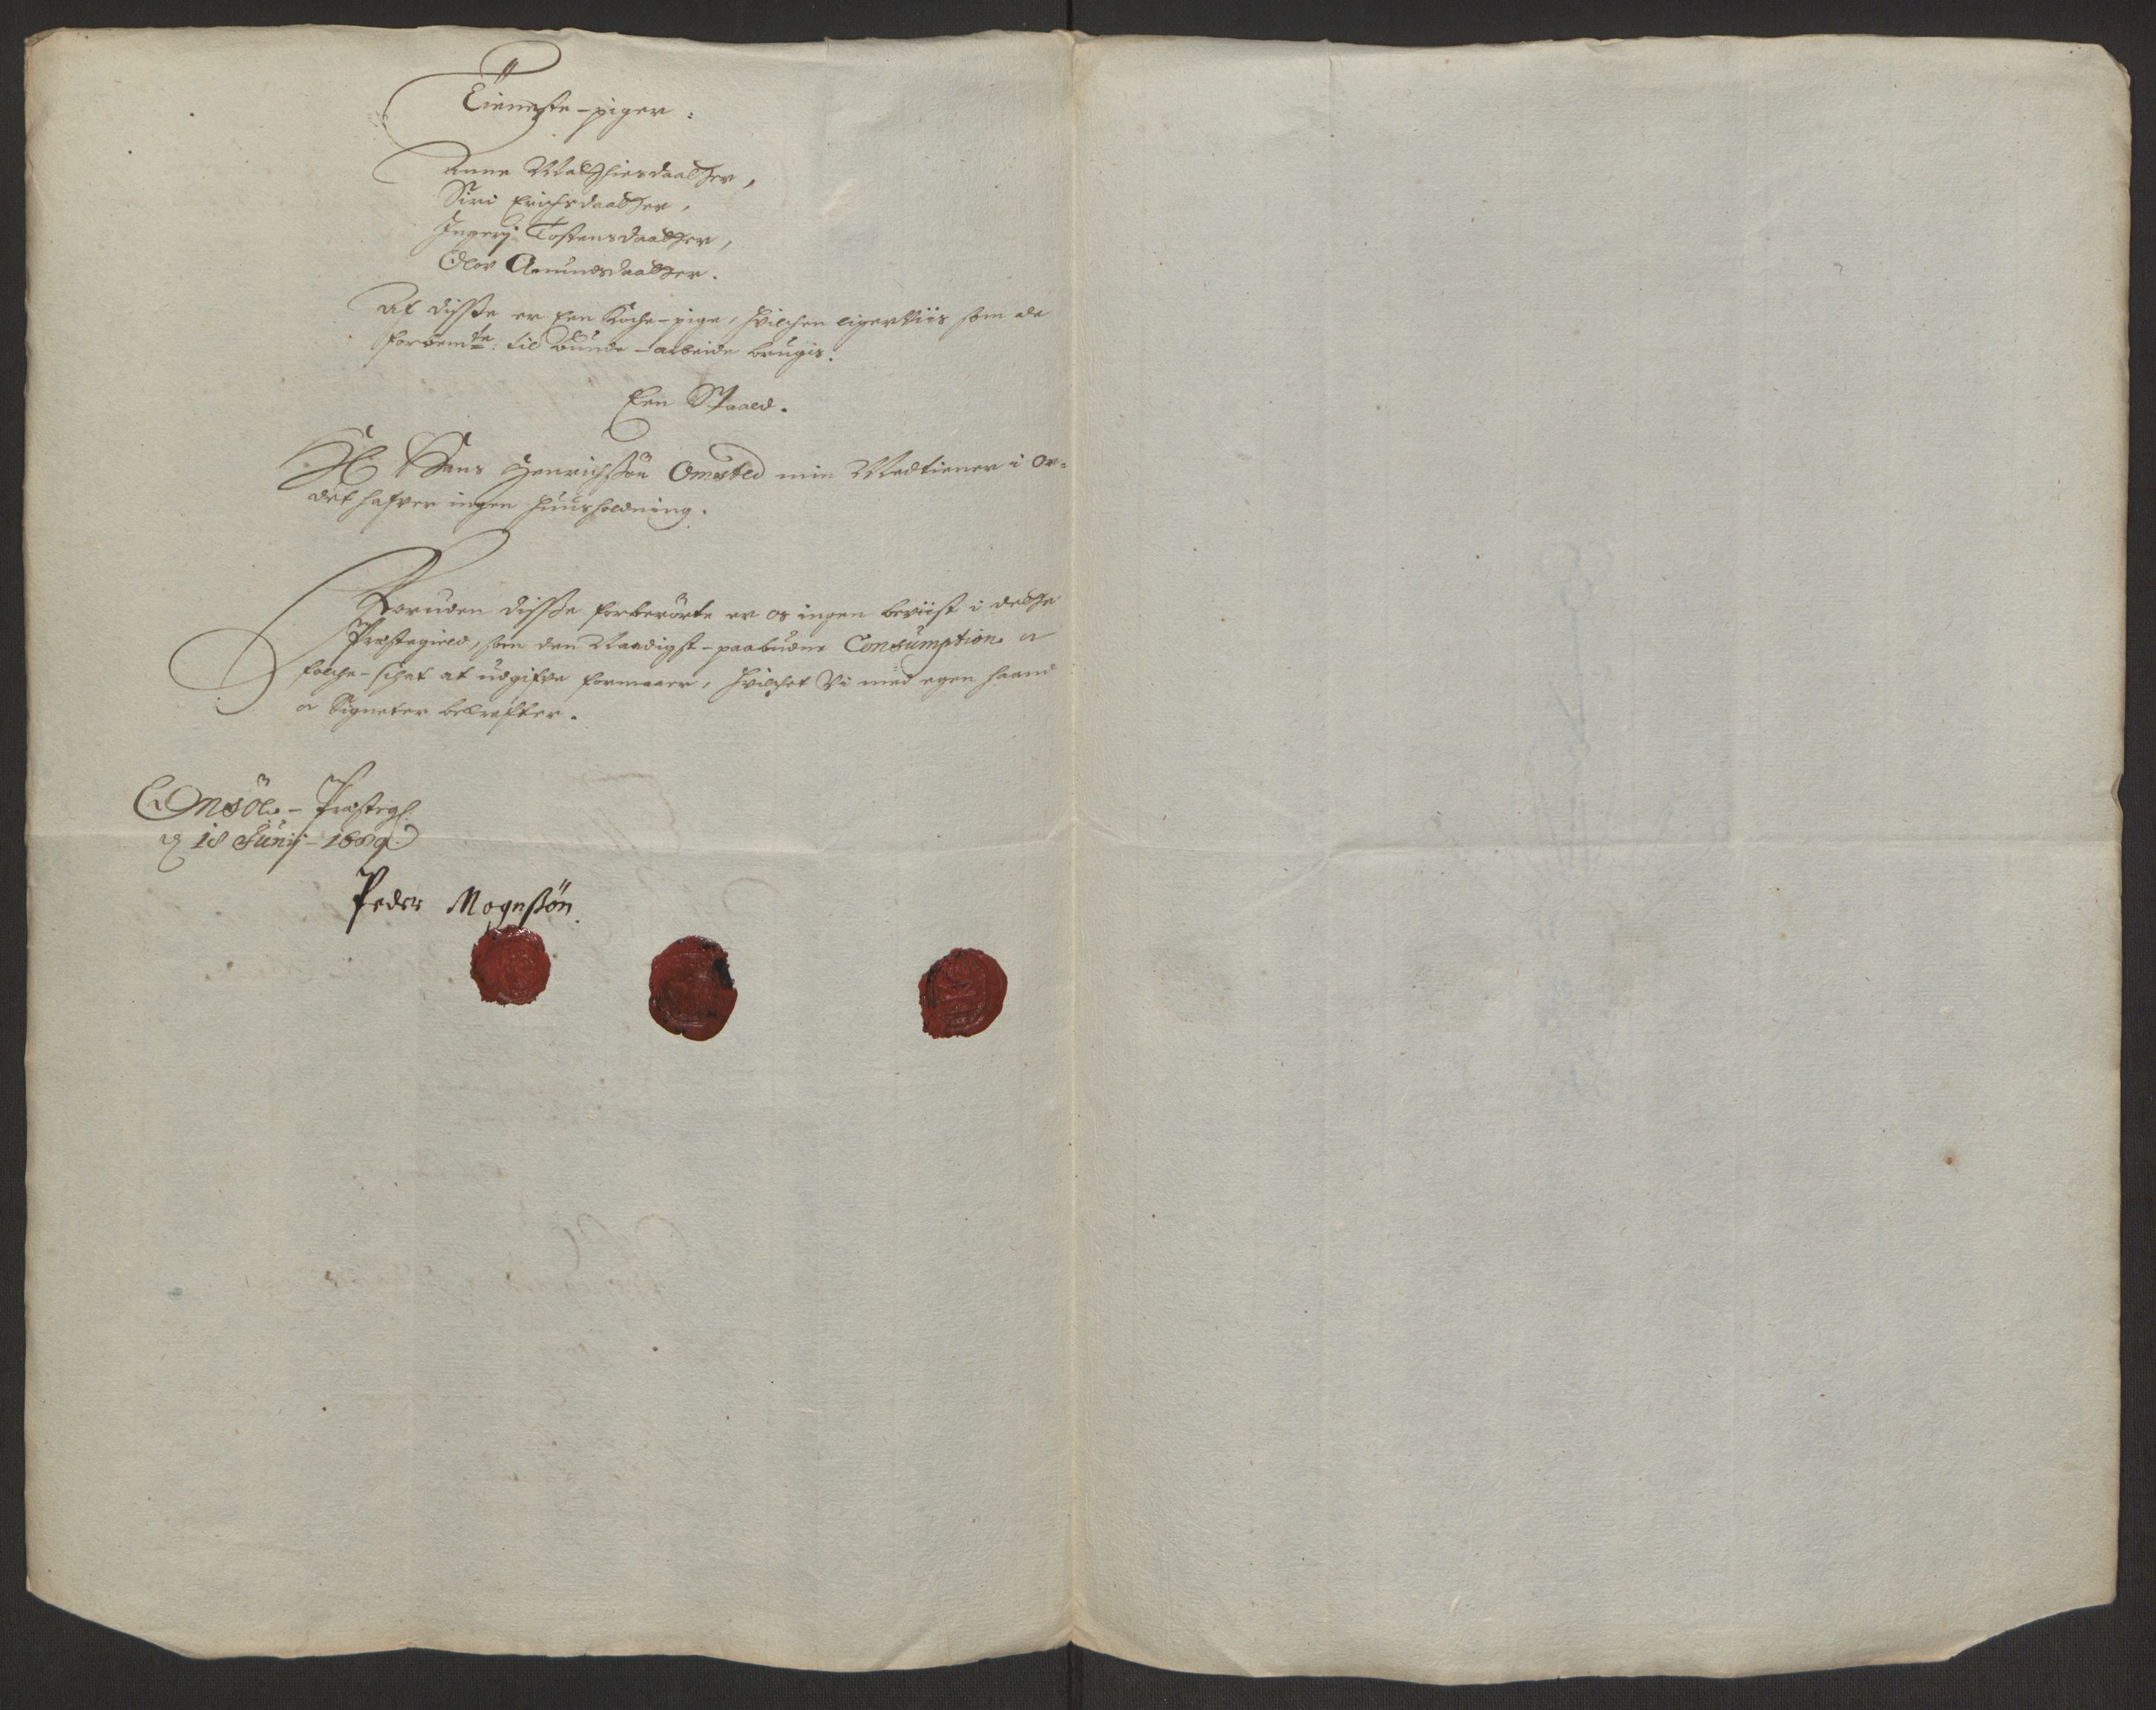 Tieneste-piger:
Anne Matthiesdaatter,
Siri Erichsdaatter,
Ingerj Tostensdaatter,
Olov Amundsdaatter.
Af disse er een Koche-pige, hvilchen ligerviis som de
forbemte: til bunde-arbeide brugis.
Een Staald.
Hr Hans Henrichssön Omsted min Medtiener i Or-
det hafver ingen huusholdning.
Foruden disse forberörte er os ingen beviist i dette
Præstegield, som den Naadigst-paabudne Consumption a
folche-schat at udgifve formaaer, hvilchet Vi med egen haand
a Signeter bekrefter.
Onsöe-Præstegl.
d 18 Junij-1689.
Peder Mognssön.